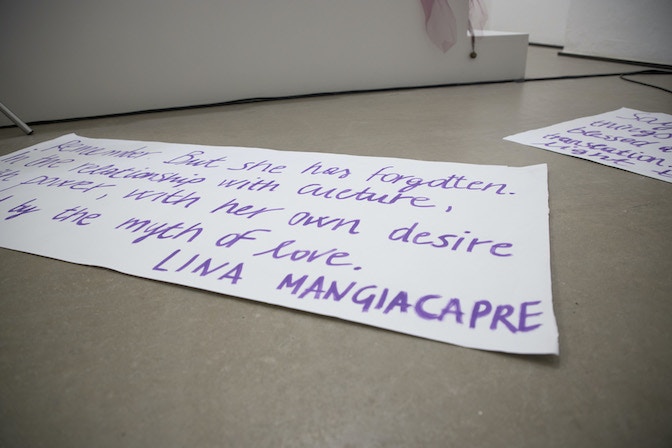 Remember. But she has forgotten.
In the relationship with culture,
power, with her own desire
by the myth of love.
LINA MANGIACAPRE
things
blessed